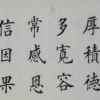 厚積德
多寬容
常感恩
信因果